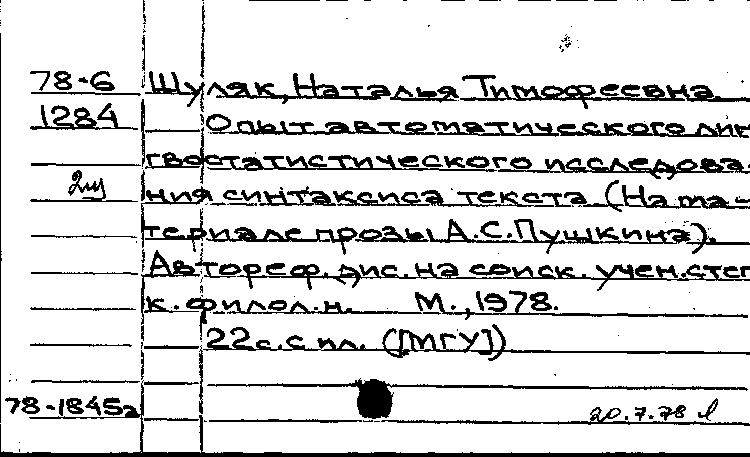 78-6 Шуляк, Наталья Тимофеевна.
1284 Опыт автоматического лин
гвостатистического исследова-
ния синтаксиса текста (На ма-
териале прозы А.С.Пушкина).
Автореф. дис. на соиск. учен. степ
к. филол. н. М., 1978.
22с. с ил. ([МГУ])
78-1845а
20.7.78